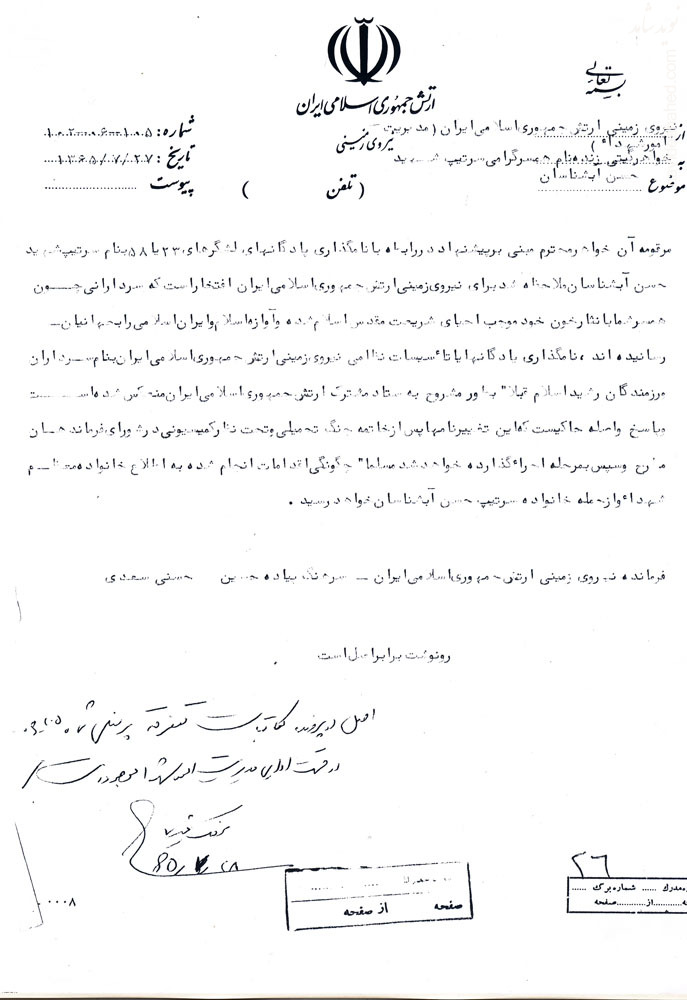 بسمه تعالی
ارتش جمهوری اسلامی ایران
نیروی زمینی
شماره: ۱۰۲-۰۶-۱۰۵
تاریخ: ۱۳۶۵/۷/۲۷
پیوست
(تلفن )
از نیروی زمینی ارتش جمهوری اسلامی ایران (مدیریت
امور شهداء)
به خواهر گیتی زنده نام همسر گرامی سرتیپ شهید
حسن آبشناسان
موضوع
مرقومه آن خواهر محترم مبنی بر پیشنهاد در رابطه با نامگذاری پادگانهای لشگرهای ۲۳ یا ۵۸ بنام سرتیپ شهید
حسن آبشناسان ملاحظه شد برای نیروی زمینی ارتش جمهوری اسلامی ایران افتخار است که سردارانی چون
همسر شما با نثار خون خود موجب احیای شریعت مقدس اسلام شده و آوازه اسلام و ایران اسلامی را بجهانیان
رسانیده اند، نامگذاری پادگانها یا تأسیسات نظامی نیروی زمینی ارتش جمهوری اسلامی ایران بنام سرداران
و رزمندگان رشید اسلام قبلا" بطور مشروح به ستاد مشترک ارتش جمهوری اسلامی ایران منعکس شده است
و پاسخ واصله حاکیست که این تغییر نامها پس از خاتمه جنگ تحمیلی و تحت نظر کمیسیونی در شورای فرماندهان
مطرح و سپس بمرحله اجراء گذارده خواهد شد مسلما" چگونگی اقدامات انجام شده به اطلاع خانواده معظم
شهداء و از جمله خانواده سرتیپ حسن آبشناسان خواهد رسید .
فرمانده نیروی زمینی ارتش جمهوری اسلامی ایران ـ سرهنگ پیاده حسین حسنی سعدی
رونوشت برابر اصل است
اصل در پرونده مکاتبات متفرقه پرسنلی
در قسمت اداری مدیریت امور شهدا موجود است
۲۶
مدرک ...... شماره برگ ......
از.........صفحه
صفحه از صفحه
۰۰۰۸